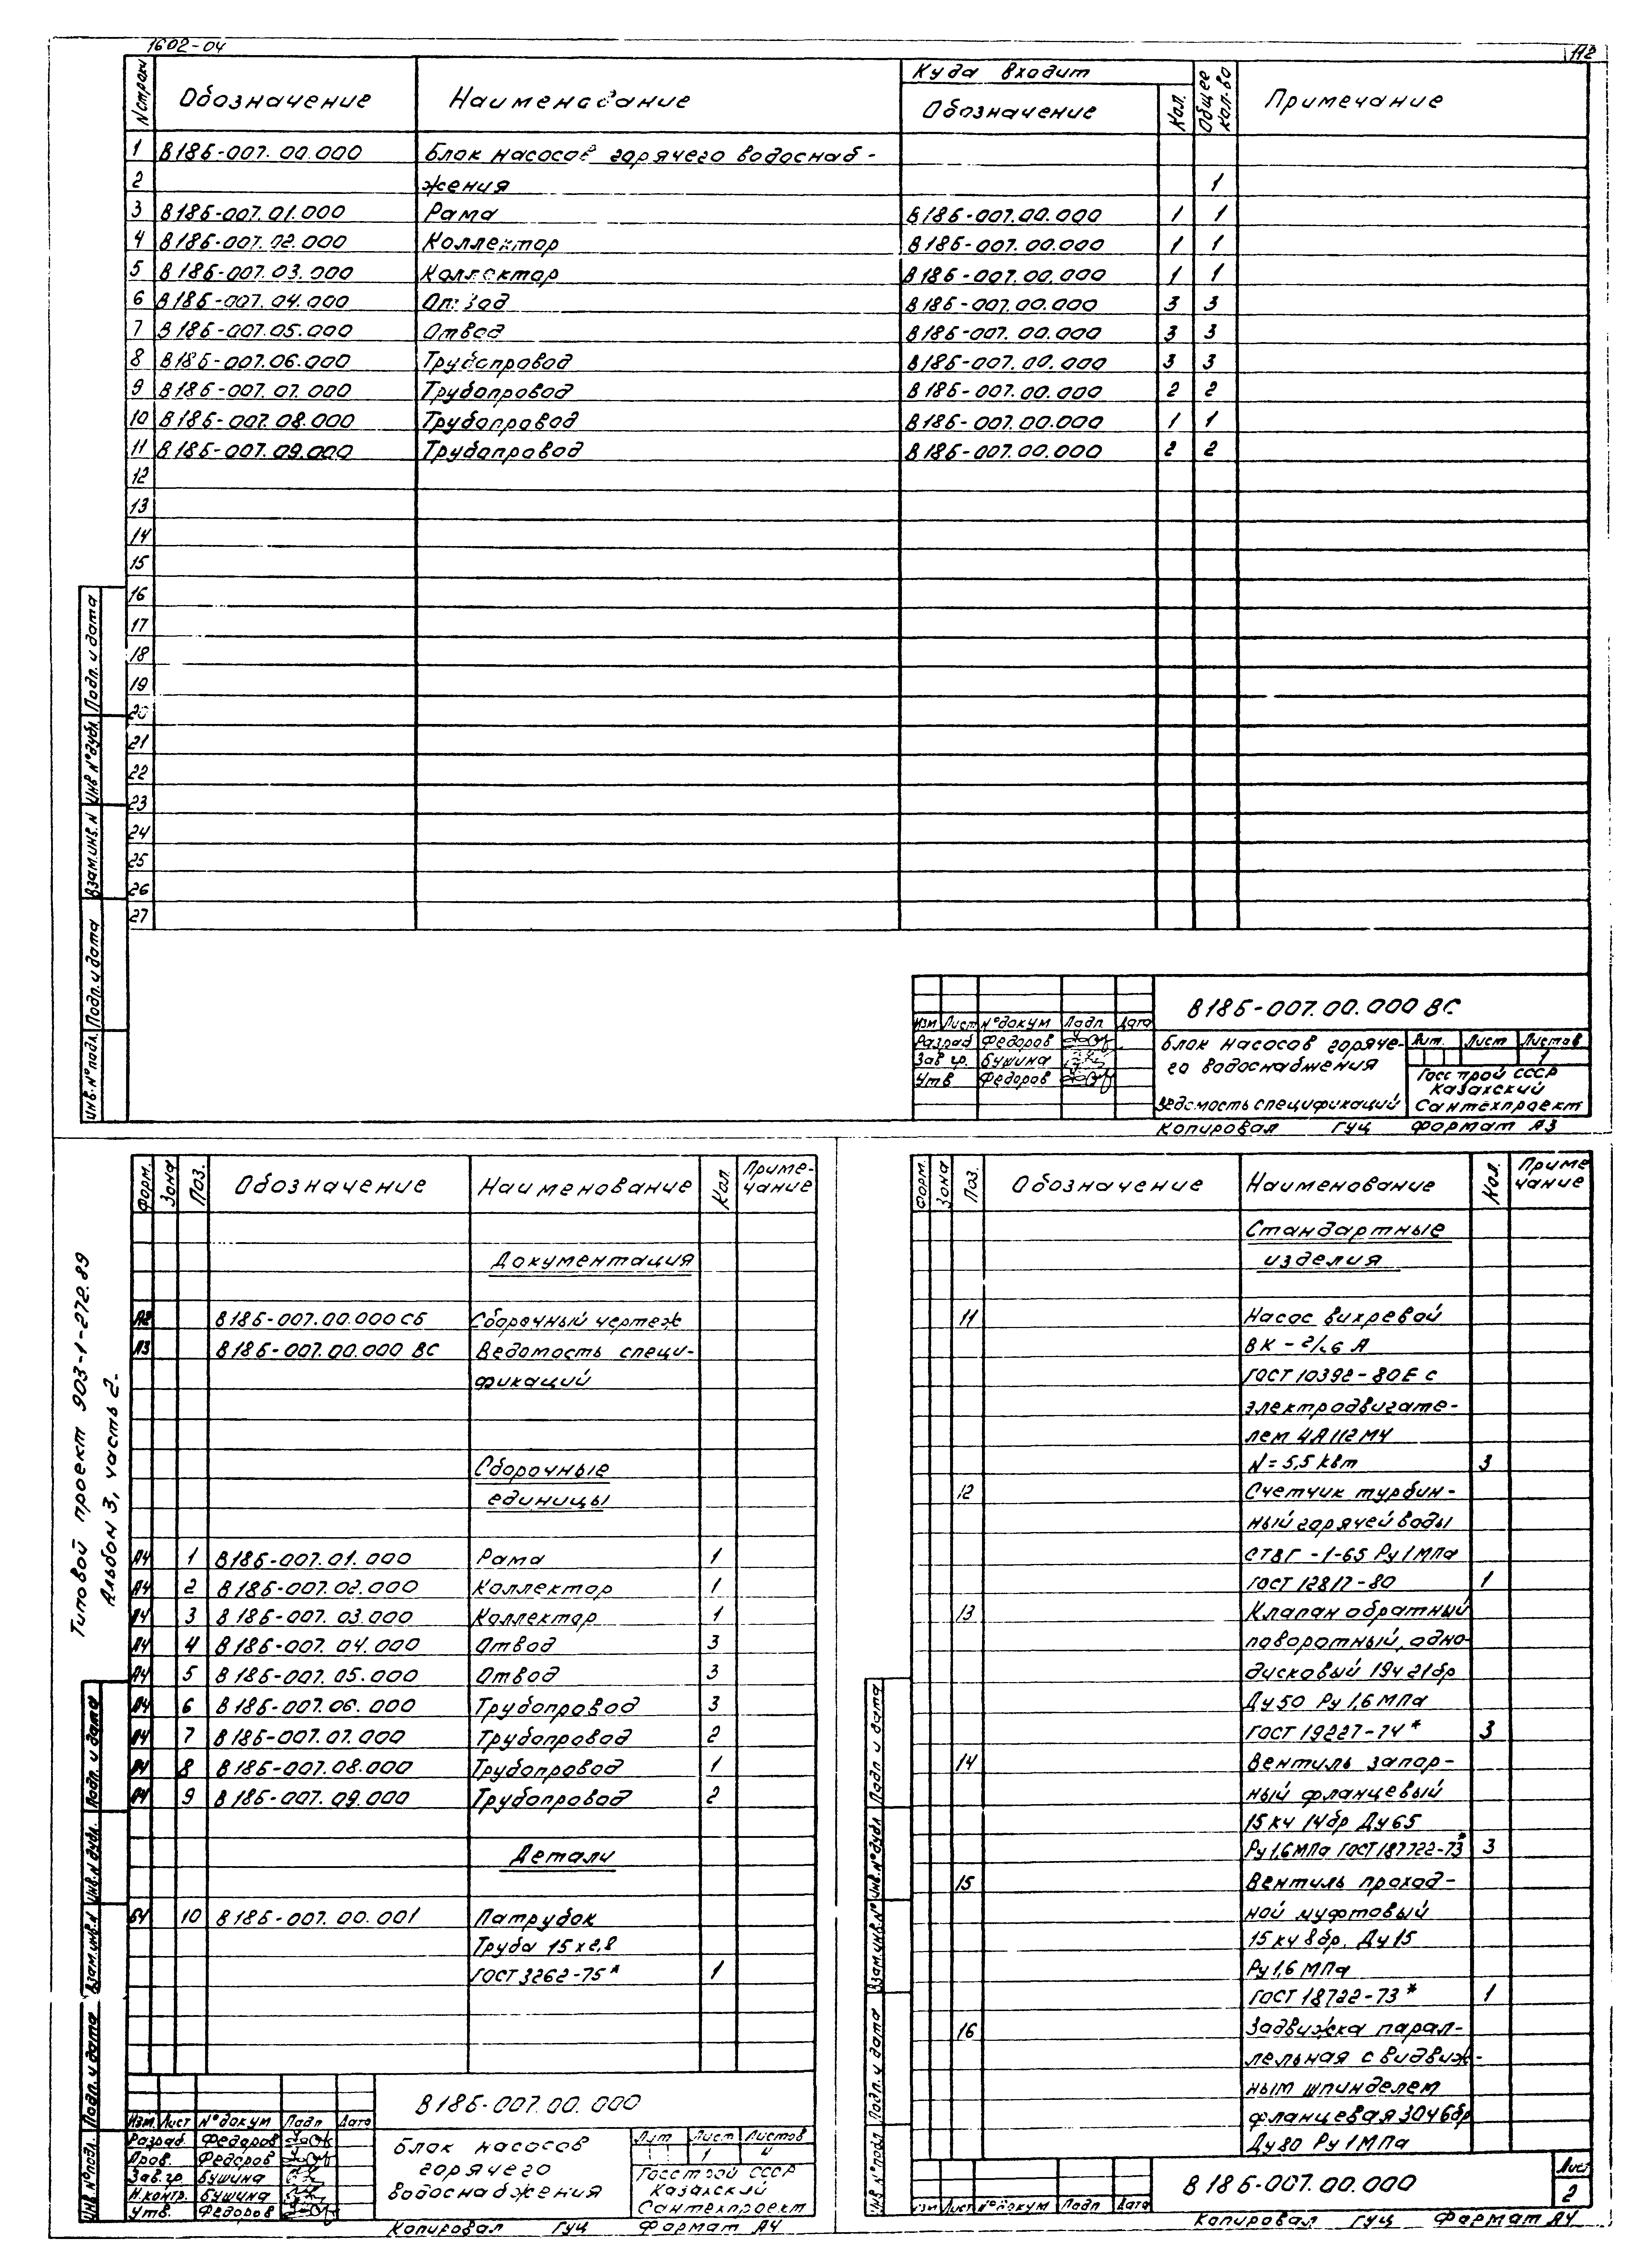 1602-04
112
№ строки Обозначение Наименование Куда входит Обозначение Кол. Общее кол-во Примечание
1 В186-007.00.000 Блок насосов горячего водоснаб-
2 жения 1
3 В186-007.01.000 Рама В186-007.00.000 1 1
4 В186-007.02.000 Коллектор В186-007.00.000 1 1
5 В186-007.03.000 Коллектор В186-007.00.000 1 1
6 В186-007.04.000 Отвод В186-007.00.000 3 3
7 В186-007.05.000 Отвод В186-007.00.000 3 3
8 В186-007.06.000 Трубопровод В186-007.00.000 3 3
9 В186-007.07.000 Трубопровод В186-007.00.000 2 2
10 В186-007.08.000 Трубопровод В186-007.00.000 1 1
11 В186-007.09.000 Трубопровод В186-007.00.000 2 2
12
13
14
15
16
17
18
19
20
21
22
23
24
25
26
27
Инв.№подл. Подп. и дата Взам.инв.N Инв №дубл. Подп. и дата
В186-007.00.000 ВС
Изм Лист №докум Подп Дата
Разраб Федоров
Зав гр. Бушина
Утв Федоров
Блок насосов горяче-
го водоснабжения
Ведомость спецификаций
Лит. Лист Листов
1
Госстрой СССР
Казахский
Сантехпроект
Копировал ГУЦ Формат А3
Типовой проект 903-1-272.89
Альбом 3, часть 2.
Форм. Зона Поз. Обозначение Наименование Кол. Приме-
чание
Документация
А2 В186-007.00.000 СБ Сборочный чертеж
А3 В186-007.00.000 ВС Ведомость специ-
фикаций
Сборочные
единицы
А4 1 В186-007.01.000 Рама 1
А4 2 В186-007.02.000 Коллектор 1
А4 3 В186-007.03.000 Коллектор 1
А4 4 В186-007.04.000 Отвод 3
А4 5 В186-007.05.000 Отвод 3
А4 6 В186-007.06.000 Трубопровод 3
А4 7 В186-007.07.000 Трубопровод 2
А4 8 В186-007.08.000 Трубопровод 1
А4 9 В186-007.09.000 Трубопровод 2
Детали
БЧ 10 В186-007.00.001 Патрубок
Труба 15х2,8
ГОСТ 3262-75* 1
Инв.№подл. Подп. и дата Взам.инв.N Инв.N дубл. Подп. и дата
В186-007.00.000
Изм. Лист №докум Подп Дата
Разраб. Федоров
Пров. Федоров
Зав.гр. Бушина
Н.контр. Бушина
Утв. Федоров
Блок насосов
горячего
водоснабжения
Лит Лист Листов
1 4
Госстрой СССР
Казахский
Сантехпроект
Копировал ГУЦ Формат А4
Форм. Зона Поз. Обозначение Наименование Кол. Приме
чание
Стандартные
изделия
11 Насос вихревой
ВК - 2/26 А
ГОСТ 10392-80Е с
электродвигате-
лем 4А112М4
N=5,5 кВт 3
12 Счетчик турбин-
ный горячей воды
СТВГ-1-65 Ру 1 МПа
ГОСТ 12817-80 1
13 Клапан обратный
поворотный, одно-
дисковый 19ч21бр
Ду50 Ру 1,6 МПа
ГОСТ 19227-74* 3
14 Вентиль запор-
ный фланцевый
15кч 14бр Ду65
Ру 1,6 МПа ГОСТ 187722-73* 3
15 Вентиль проход-
ной муфтовый
15кч 8бр. Ду15
Ру 1,6 МПа
ГОСТ 18722-73* 1
16 Задвижка парал-
лельная с видвиж-
ным шпинделем
фланцевая 30ч6бр
Ду80 Ру 1 МПа
Инв №подл Подп. и дата Взам.инв.№ Инв.№дубл Подп и дата
Изм Лист №докум Подп Дата
В186-007.00.000
Лист
2
Копировал ГУЦ Формат А4